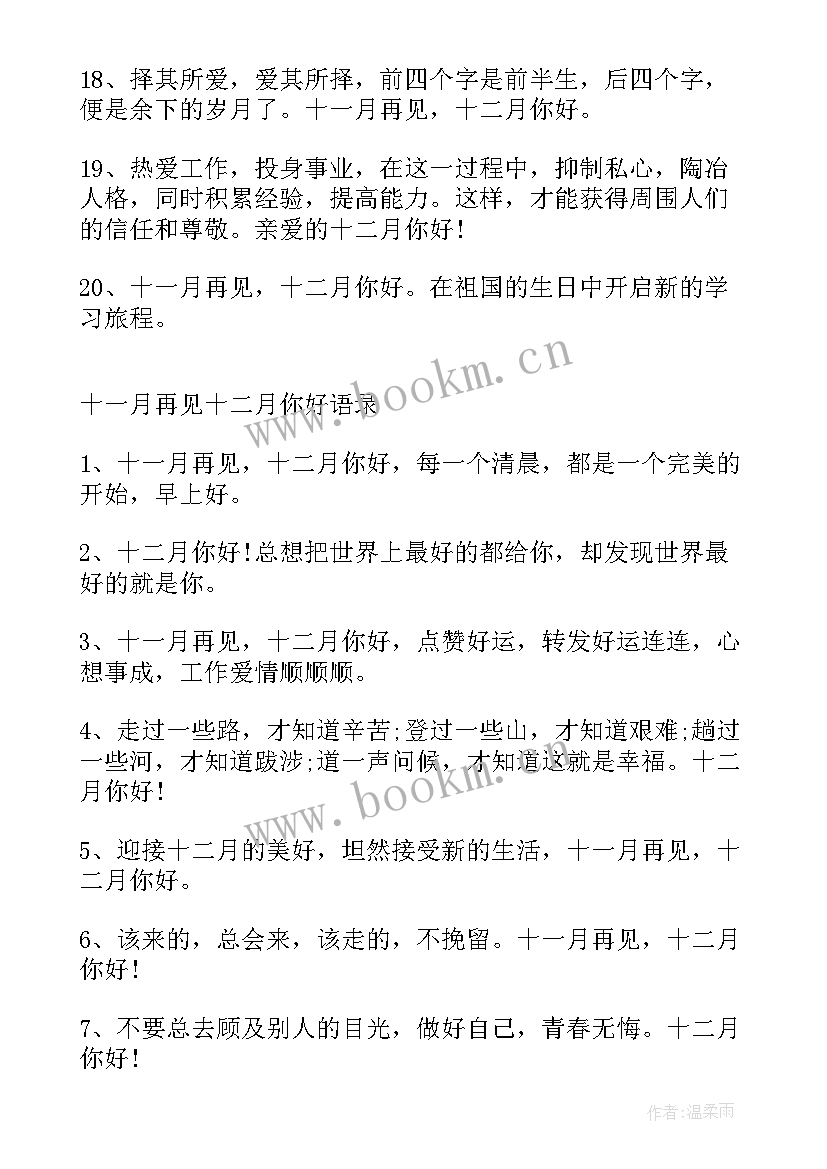 18、择其所爱，爱其所择，前四个字是前半生，后四个字，
便是余下的岁月了。十一月再见，十二月你好。
19、热爱工作，投身事业，在这一过程中，抑制私心，陶冶
人格，同时积累经验，提高能力。这样，才能获得周围人们
的信任和尊敬。亲爱的十二月你好!
20、十一月再见，十二月你好。在祖国的生日中开启新的学
习旅程。
十一月再见十二月你好语录
www.bookm.cn
1、十一月再见，十二月你好，每一个清晨，都是一个完美的
开始，早上好。
2、十二月你好!总想把世界上最好的都给你，却发现世界最
好的就是你。
3、十一月再见，十二月你好，点赞好运，转发好运连连，心
想事成，工作爱情顺顺顺。
4、走过一些路，才知道辛苦;登过一些山，才知道艰难;趟过
一些河，才知道跋涉;道一声问候，才知道这就是幸福。十二
月你好!
www.bookm.cn
5、迎接十二月的美好，坦然接受新的生活，十一月再见，十
二月你好。
6、该来的，总会来，该走的，不挽留。十一月再见，十二月
你好!
7、不要总去顾及别人的目光，做好自己，青春无悔。十二月
你好!
作者:温柔雨